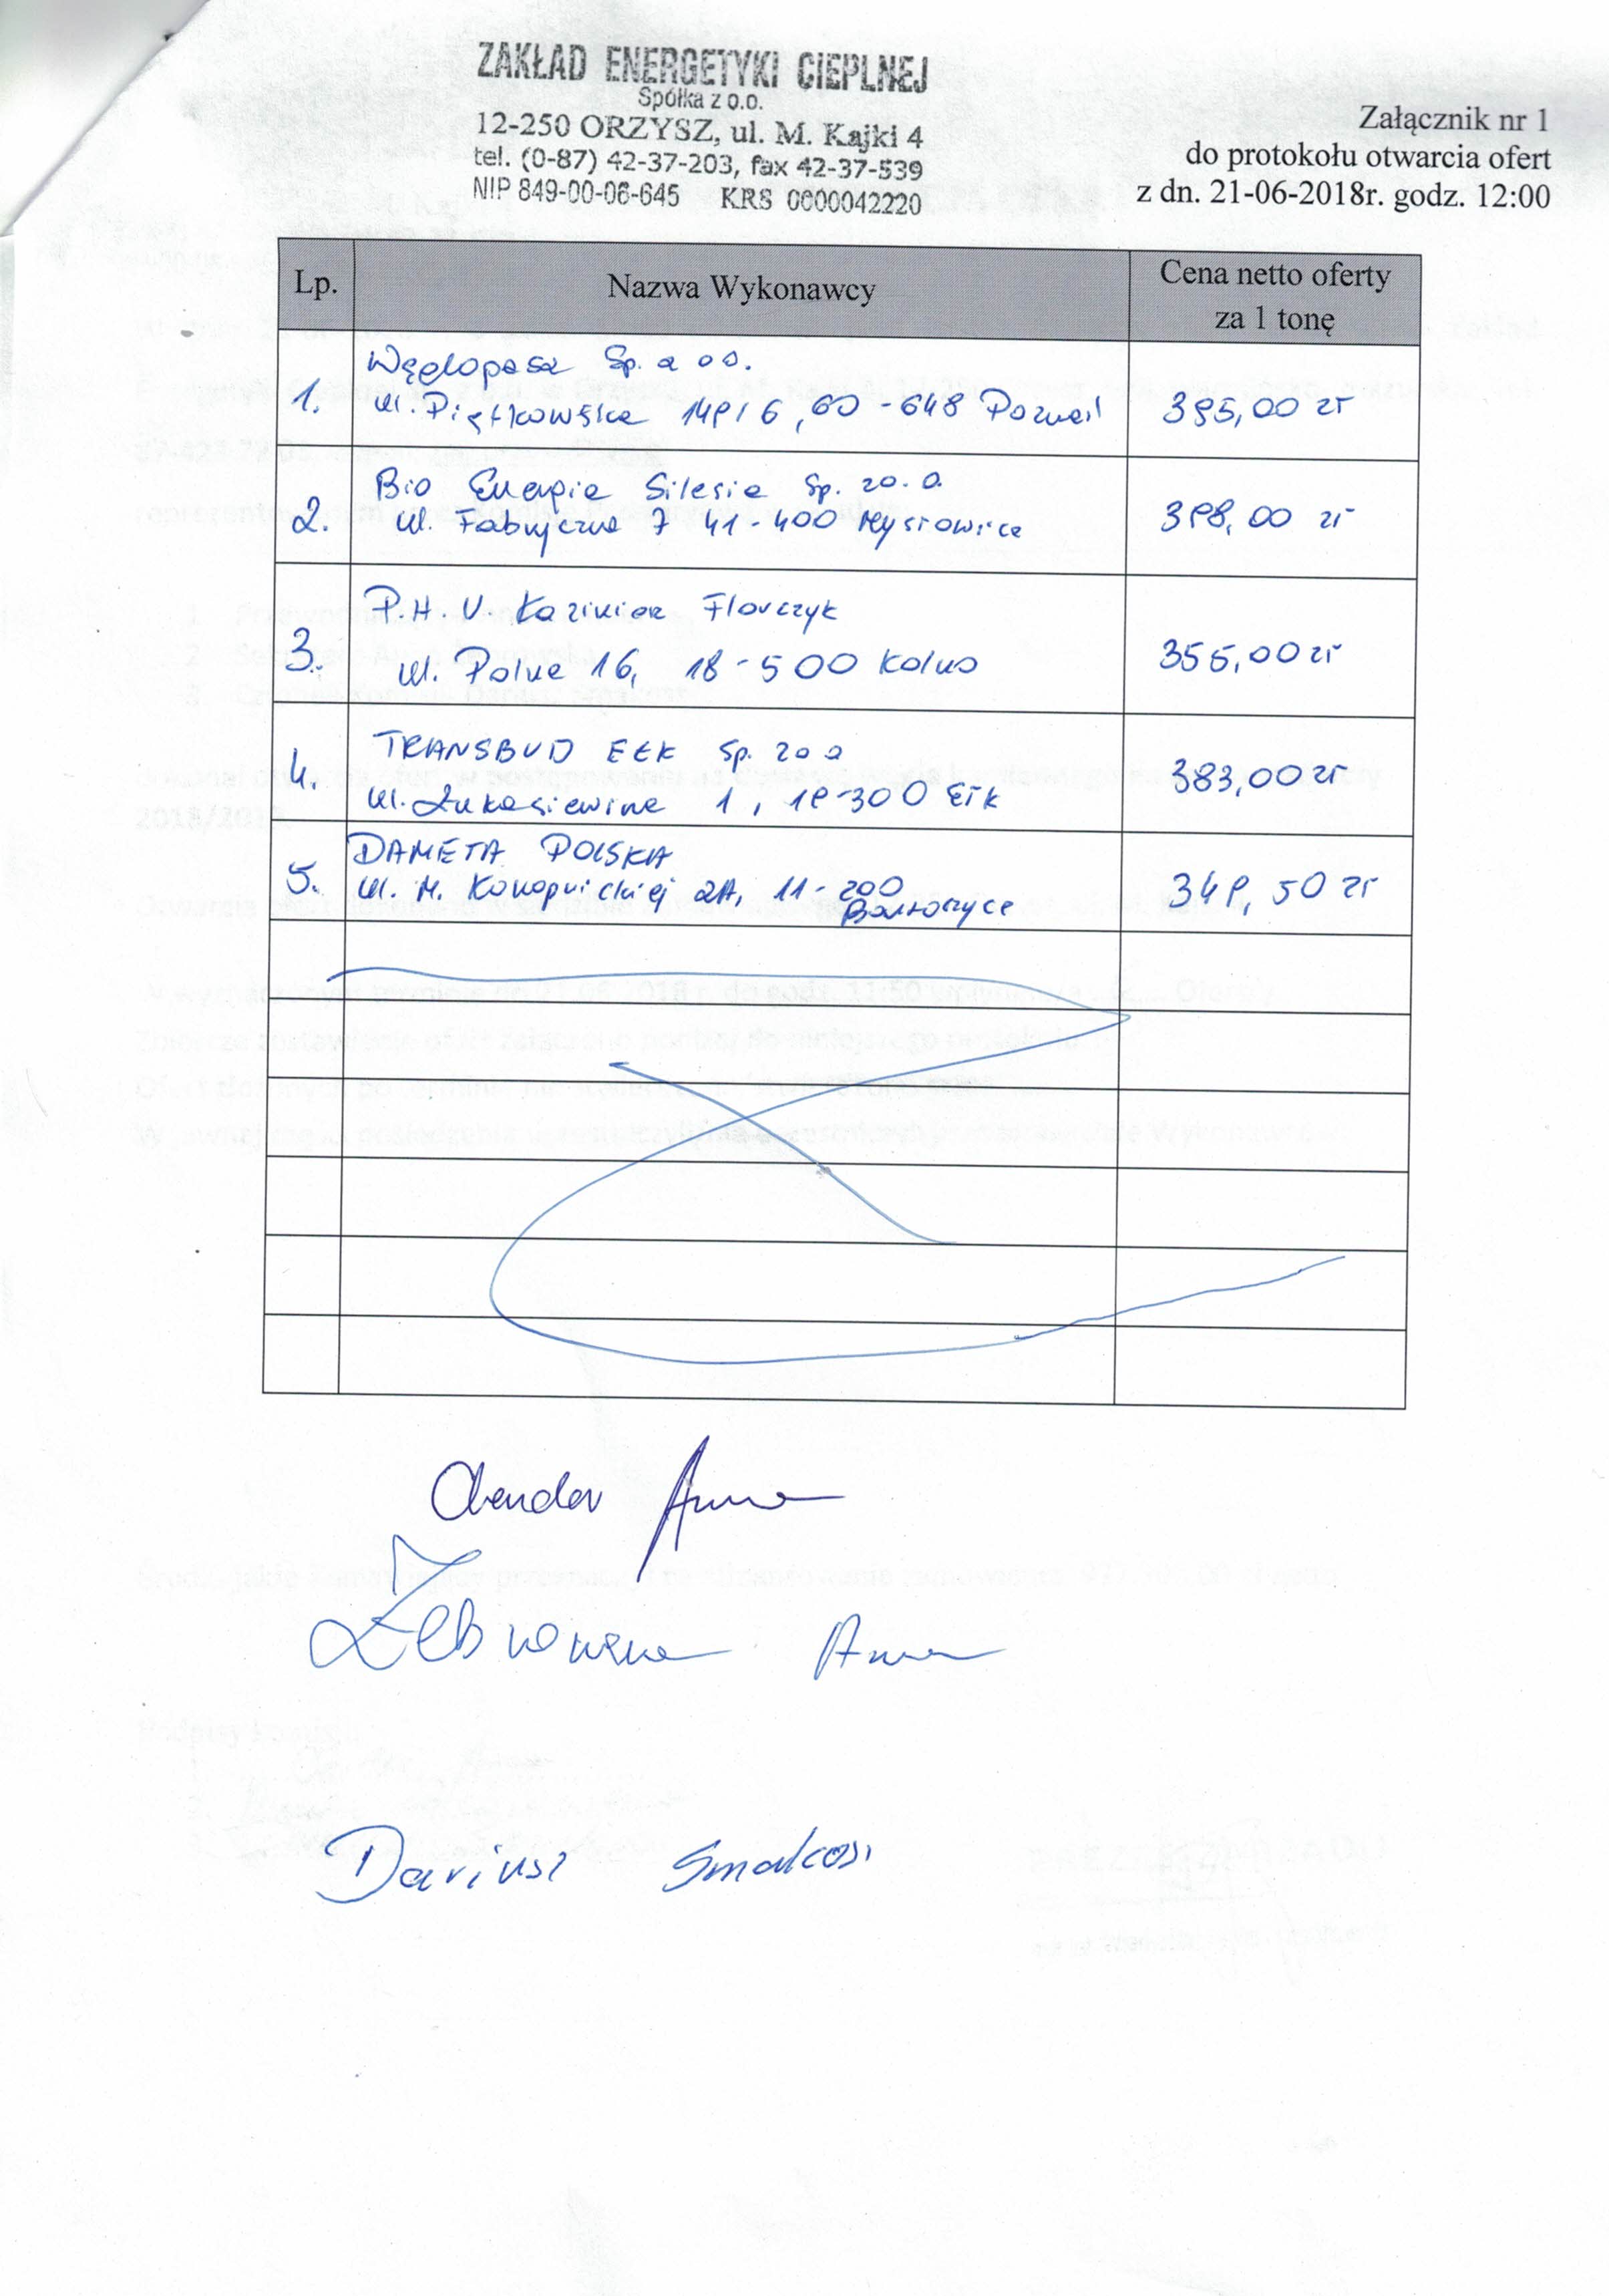 ZAKŁAD ENERGETYKI CIEPLNEJ
Spółka z o.o.
12-250 ORZYSZ, ul. M. Kajki 4
tel. (0-87) 42-37-203, fax 42-37-539
NIP 849-00-06-645 KRS 0000042220
Załącznik nr 1
do protokołu otwarcia ofert
z dn. 21-06-2018r. godz. 12:00
Lp. Nazwa Wykonawcy Cena netto oferty
za 1 tonę
Węglopasz Sp. z oo.
1. ul. Piątkowska 149/6, 60-648 Poznań 395,00 zł
Bio Energia Silesia Sp. zo.o.
2. ul. Fabryczna 7 41-400 Mysłowice 398,00 zł
P.H.U. Kazimierz Florczyk
3. ul. Polna 16, 18-500 Kolno 355,00 zł
TRANSBUD EŁK Sp. zoo
4. ul. Łukasiewicza 1, 19-300 Ełk 383,00 zł
DAMETA POLSKA
5. ul. M. Konopnickiej 2A, 11-200 349,50 zł
Bartoszyce
Anna
Żebrowska Anna
Dariusz